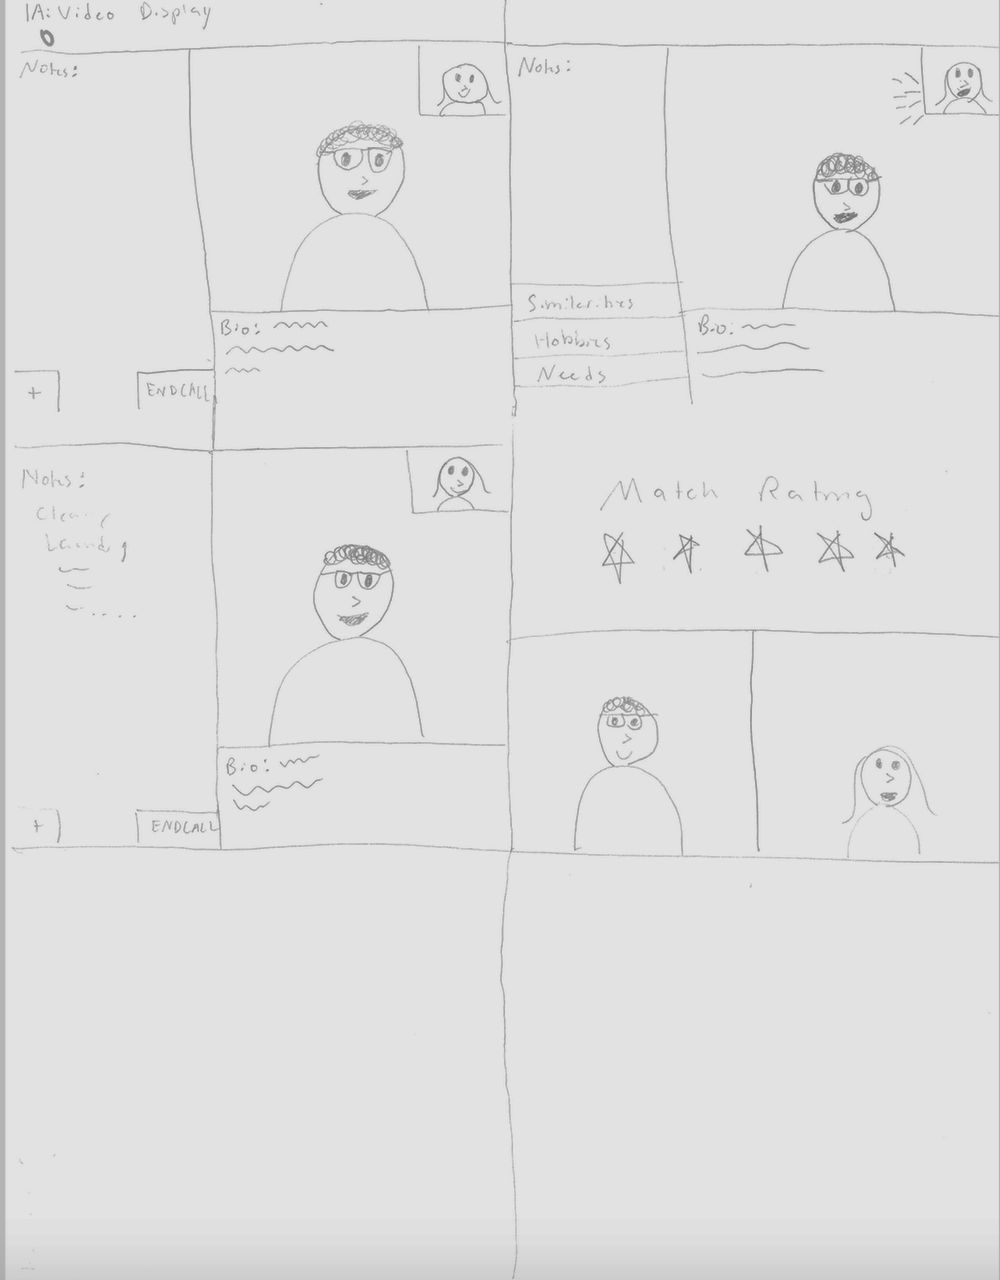 1A: Video Display
Notes:
Bio:
+
END CALL
Notes:
Similarities
Hobbies
Needs
Bio:
Notes:
Laundry
Bio:
+
END CALL
Match Rating